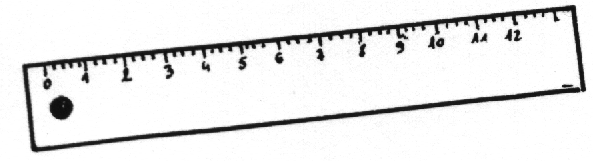 0 1 2 3 4 5 6 7 8 9 10 11 12